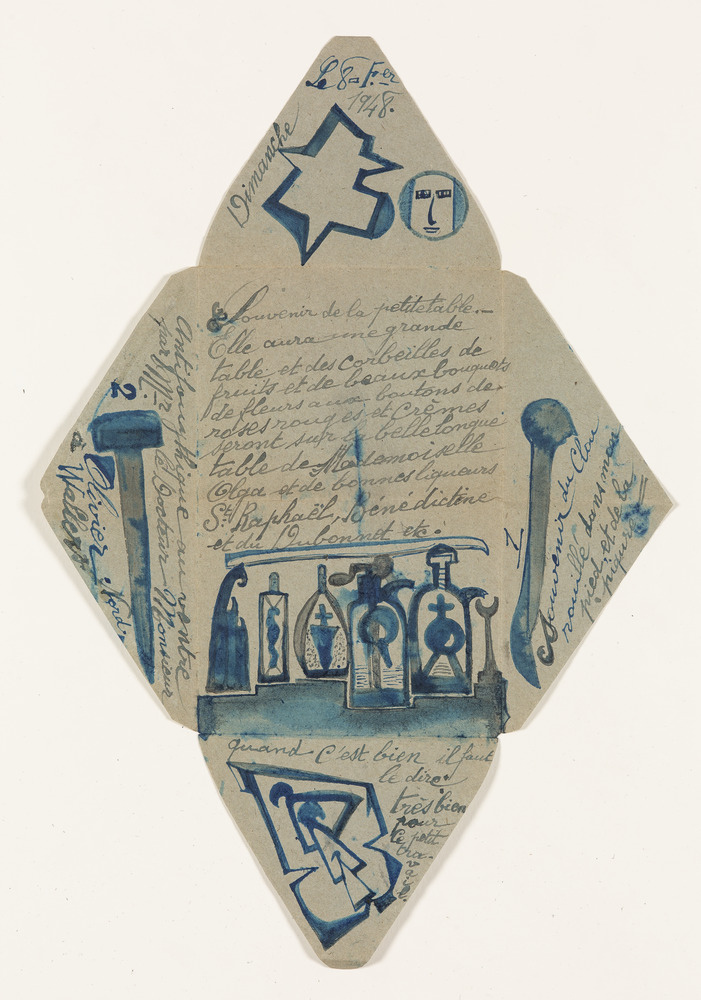 Le 8 - F.er
1948.
Dimanche
Souvenir de la petite table.-
Elle aura une grande
table et des corbeilles de
fruits et de beaux bouquets
de fleurs aux boutons de
roses rouges et crèmes
seront sur la belle longue
table de Mademoiselle
Olga et de bonnes liqueurs
St Raphaël, Bénédictine
et du Dubonnet etc.
Antitoxique au ventre
par le Docteur Monsieur
2
Olivier Nord.
à
1
Souvenir du Clou
rouillé dans mon
pied et de la
piqure
quand c'est bien il faut
le dire
très bien
pour
le petit
tra-
vail.